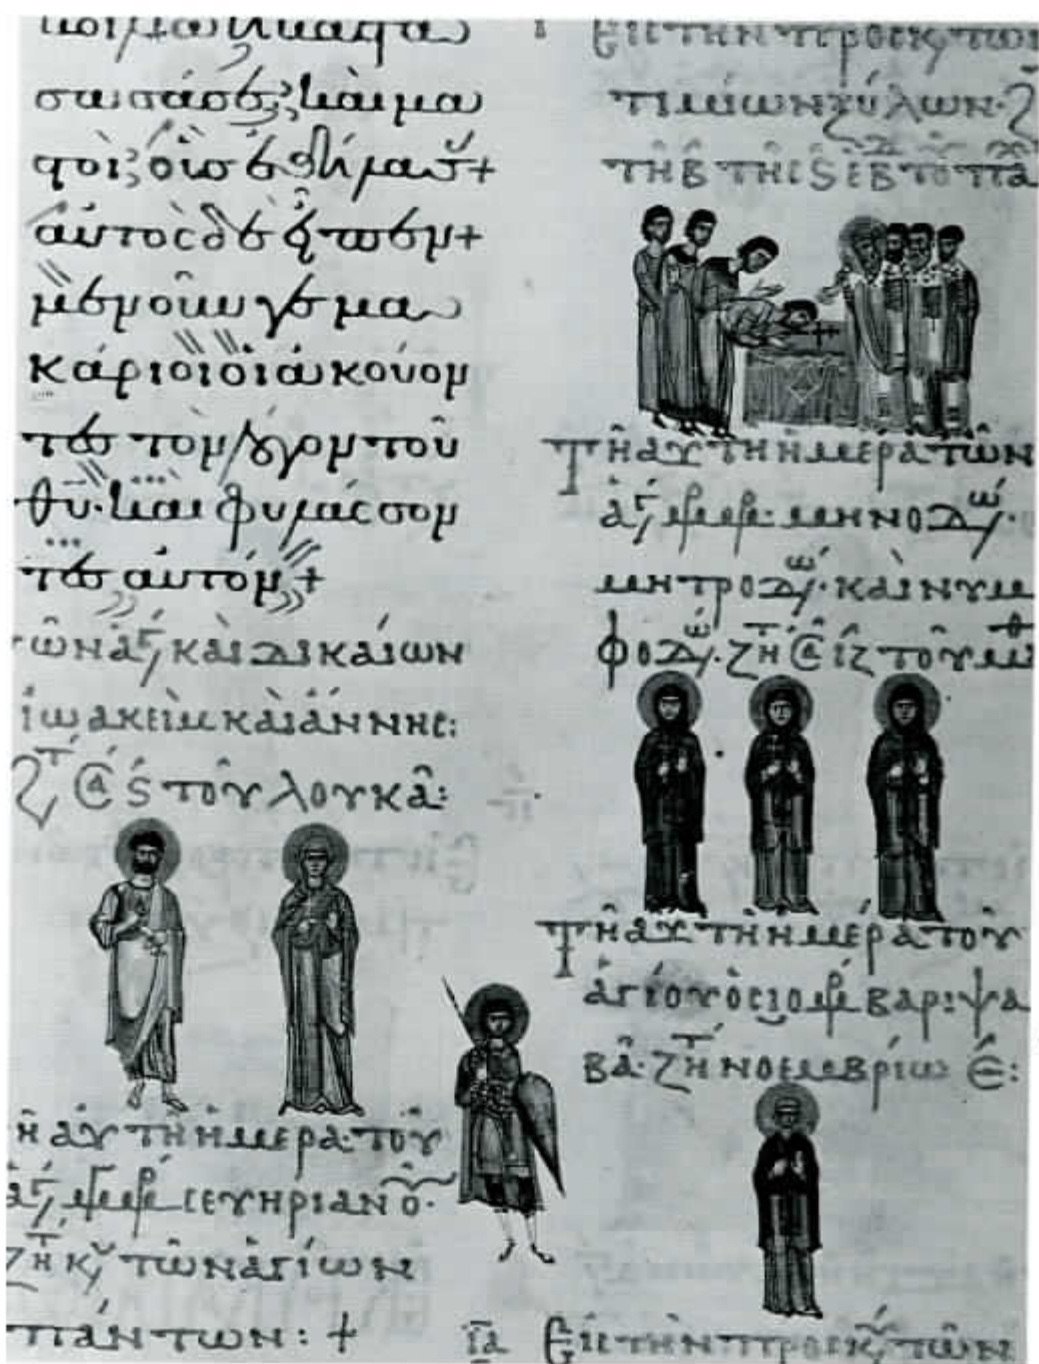 σασάσε καὶ μα
στοὶ οὓς ἐθήλασ+
αὐτὸς δὲ εἶπεν+
μενοῦν γε μα
κάριοι οἱ ἀκούον
τες τὸν λόγον τοῦ
θῦ· καὶ φυλάσσον
τες αὐτόν+
ῶν ἁγ καὶ δικαίων
ἰωακεὶμ καὶ ἄννης:
ζτ σα ϛ τοῦ λουκᾶ:
ῆ αὐτῆ ἡμέρα τοῦ
ἁγ μρ σευηριανοῦ·
ζτ κυ τῶν ἁγίων
πάντων: +
ι Εἰς τὴν προσκ τῶν
τιμίων ξύλων· ζ
τῆ β τῆς ϛ εβ το πα
Τῆ αὐτῆ ἡμέρα τῶν
ἁγ μρ μηνοδω·
μητροδω· καὶ νυμ
φοδω· ζτ σα ιζ τοῦ μθ
Τῆ αὐτῆ ἡμέρα τοῦ
ἁγίου ὁσιομρ βαριψα
βᾶ· ζτ νοεμβρίω ε:
ια Εἰς τὴν προσκ τῶν